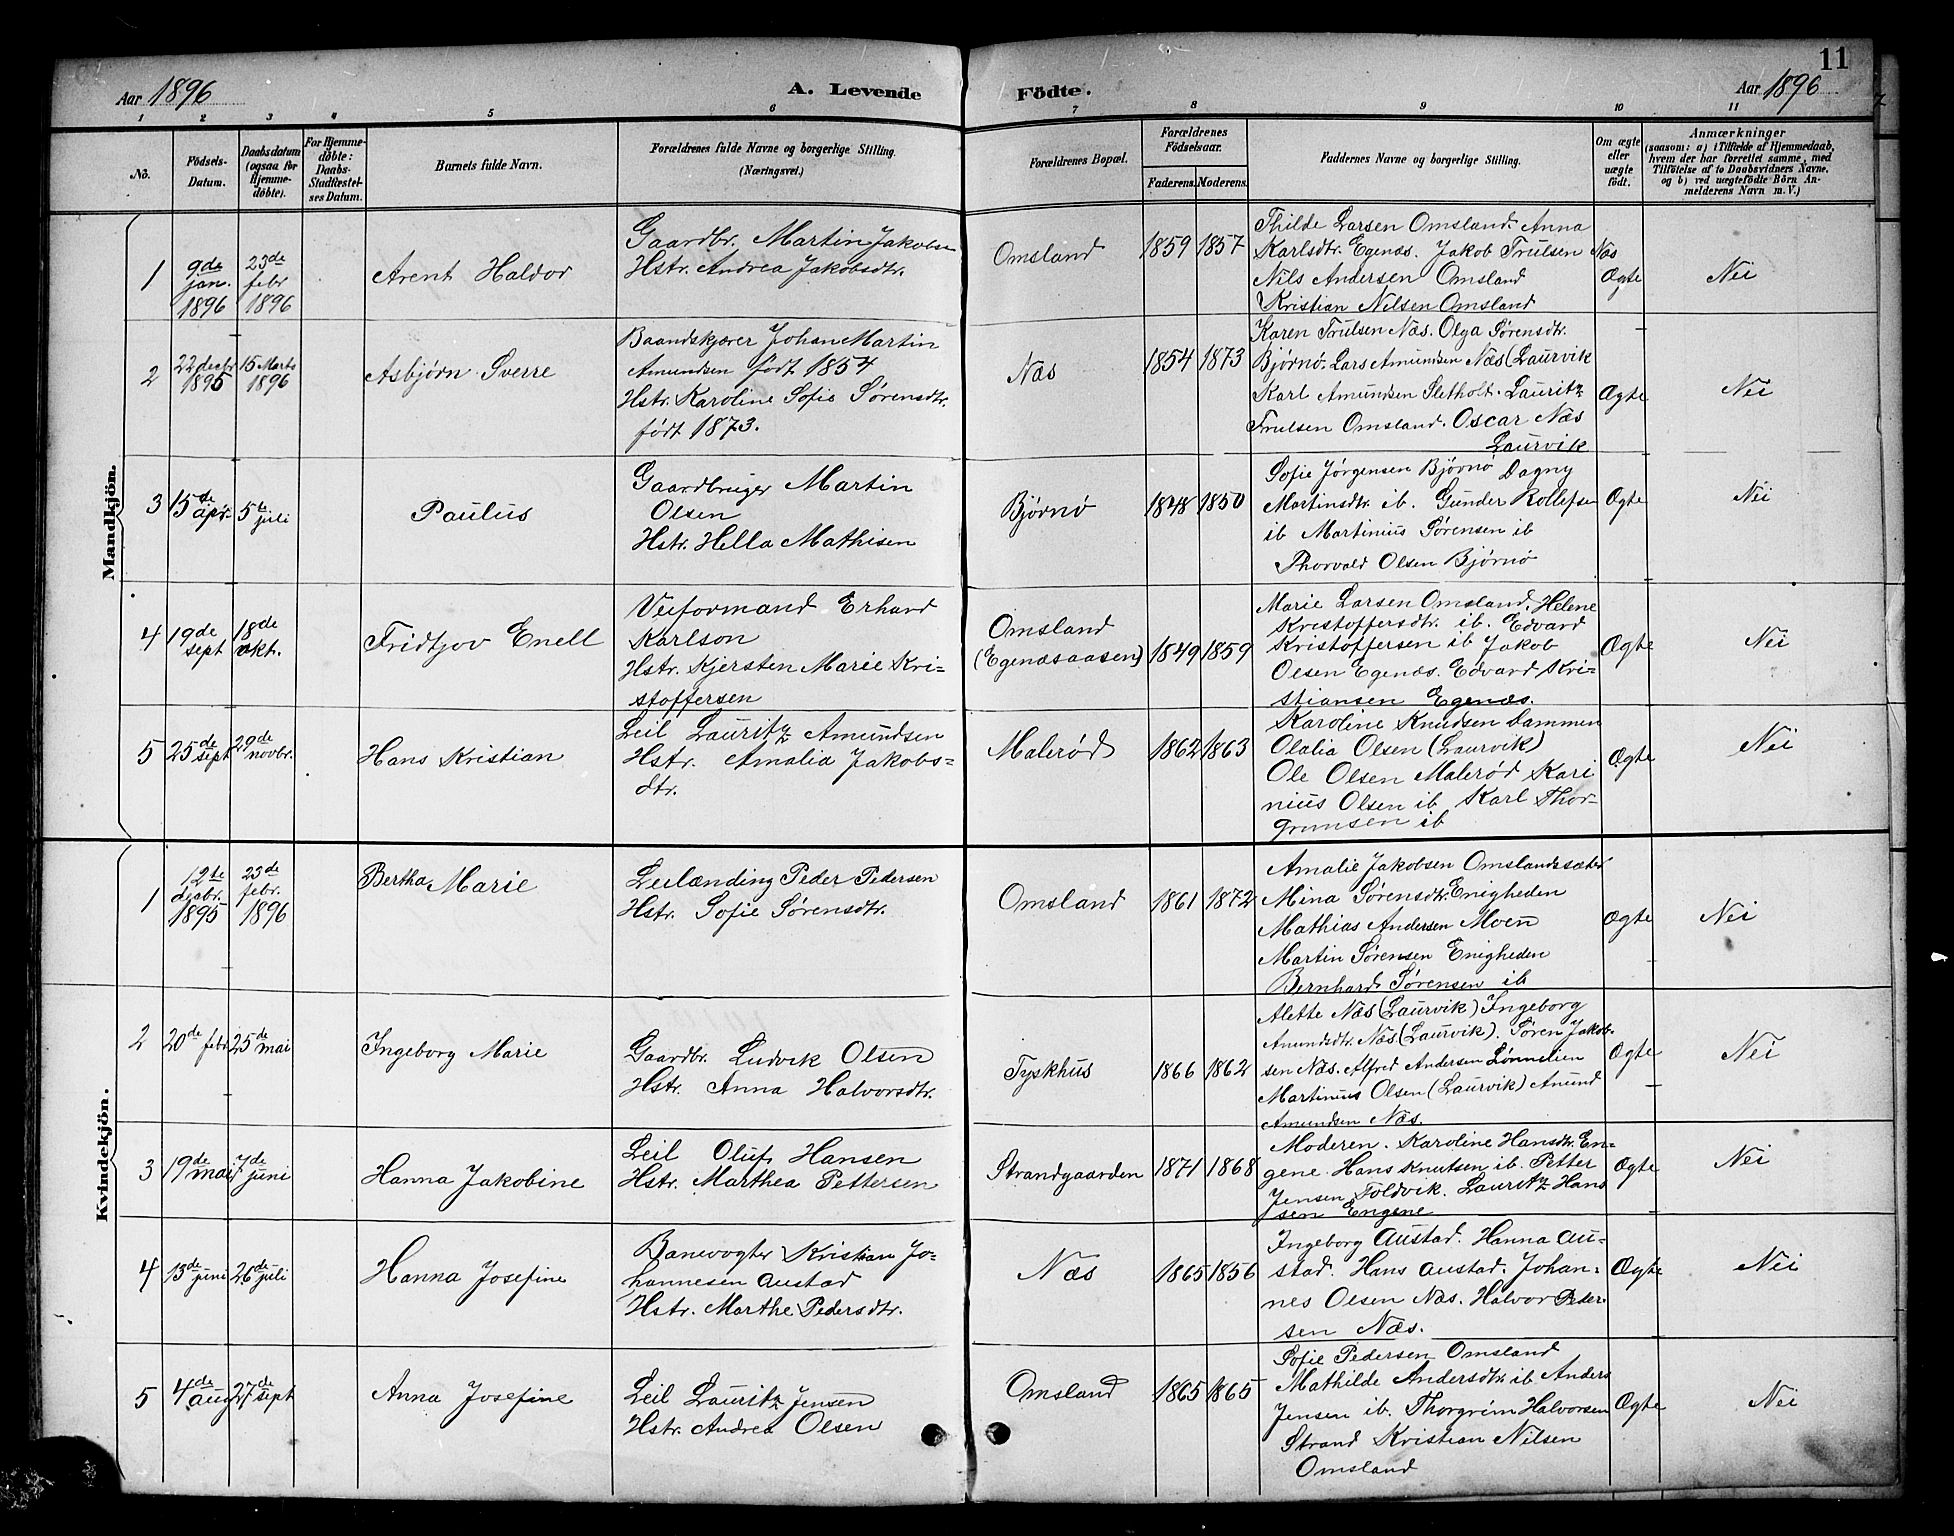 11
Aar 1896
A. Levende Födte.
Aar 1896
1 2 3 4 5 6 7 8 9 10 11
No.
Födsels-
Datum.
Daabsdatum
(ogsaa for
Hjemme-
döbte).
For Hjemme-
döbte:
Daabs-
Stadfæstel-
ses Datum.
Barnets fulde Navn.
Forældrenes fulde Navne og borgerlige Stilling.
(Næringsvei.)
Forældrenes Bopæl.
Forældrenes
Födselsaar.
Faderens. Moderens.
Faddernes Navne og borgerlige Stilling.
Om ægte
eller
uægte
födt.
Anmærkninger
(saasom: a) i Tilfælde af Hjemmedaab,
hvem der har forrettet samme, med
Tilföielse af to Daabsvidners Navne,
og b) ved uægtefödte Börn An-
melderens Navn m. V.)
Mandkjön.
1
9de
jan.
1896
23de
febr
1896
Arent Haldor
Gaardbr. Martin Jakobsen
Hstr. Andrea Jakobsdtr.
Omsland
1859 1857
Thilde Larsen Omsland. Anna
Karlsdtr. Egenæs. Jakob Trulsen Næs
Nils Andersen Omsland
Kristian Nilsen Omsland
Ægte
Nei
2
22 decbr
1895
15 Marts
1896
Asbjørn Sverre
Baandskjærer Johan Martin
Amundsen født 1854
Hstr. Karoline Sofie Sørensdtr.
født 1873.
Næs
1854 1873
Karen Trulsen Næs. Olga Sørensdtr.
Bjørnø. Lars Amundsen Næs (Laurvik
Karl Amundsen Sletholt. Lauritz
Trulsen Omsland. Oscar Næs
Laurvik
Ægte
Nei
3
15de
apr.
5te
juli
Paulus
Gaardbruger Martin
Olsen
Hstr. Hella Mathisen
Bjørnø
1848 1850
Sofie Jørgensen Bjørnø Dagny
Martinsdtr. ib. Gunder Rollefsen
ib Martinius Sørensen ib
Thorvald Olsen Bjørnø
Ægte
Nei
4
19de
sept
18de
okt.
Fridtjov Enell
Veiformand Erhard
Karlson
Hstr. Kjersten Marie Kri-
stoffersen
Omsland
(Egenæsaasen)
1849 1859
Marie Larsen Omsland. Helene
Kristoffersdtr. ib. Edvard
Kristoffersen ib Jakob
Olsen Egenæs. Edvard Kri-
stiansen Egenæs.
Ægte
Nei
5
25de
sept
29de
novbr.
Hans Kristian
Leil Lauritz Amundsen
Hstr. Amalia Jakobs-
dtr.
Malerød
1862 1863
Karoline Knudsen Dammen
Olalia Olsen (Laurvik)
Ole Olsen Malerød Kari
nius Olsen ib. Karl Thor-
grimsen ib
Ægte
Nei
Kvindekjön.
1
12te
decbr.
1895
23de
febr.
1896
Bertha Marie
Leilænding Peder Pedersen
Hstr. Sofie Sørensdtr.
Omsland
1861 1872
Amalie Jakobsen Omslandssæter
Mina Sørensdtr. Enigheden
Mathias Andersen Moen
Martin Sørensen Enigheden
Bernhard Sørensen ib
Ægte
Nei
2
20de febr
25de mai
Ingeborg Marie
Gaardbr. Ludvik Olsen
Hstr. Anna Halvorsdtr.
Tyskhus
1866 1862
Alette Næs (Laurvik) Ingeborg
Amundsdtr. Næs (Laurvik). Søren Jakob-
sen Næs. Alfred Andersen Lønnelien
Martinius Olsen (Laurvik) Amund
Amundsen Næs.
Ægte
Nei
3
19de
mai
7de
juni
Hanna Jakobine
Leil Oluf Hansen
Hstr. Marthea Pettersen
Strandgaarden
1871 1868
Moderen. Karoline Hansdtr. En-
gene. Hans Knutsen ib. Petter
Jensen Foldvik. Lauritz Han
sen Engene
Ægte
Nei
4
13de
juni
26de
juli
Hanna Josefine
Banevogter Kristian Jo-
hannesen Austad
Hstr. Marthe Pedersdtr.
Næs
1865 1856
Ingeborg Austad. Hanna Au-
stad. Hans Austad. Johan-
nes Olsen Næs. Halvor Peder-
sen Næs.
Ægte
Nei
5
4de
aug
27de
sept
Anna Josefine
Leil Lauritz Jensen
Hstr. Andrea Olsen
Omsland
1865 1865
Sofie Pedersen Omsland
Mathilde Andersdtr. ib. Anders
Jensen ib. Thorgrim Halvorsen
Strand Kristian Nilsen
Omsland
Ægte
Nei